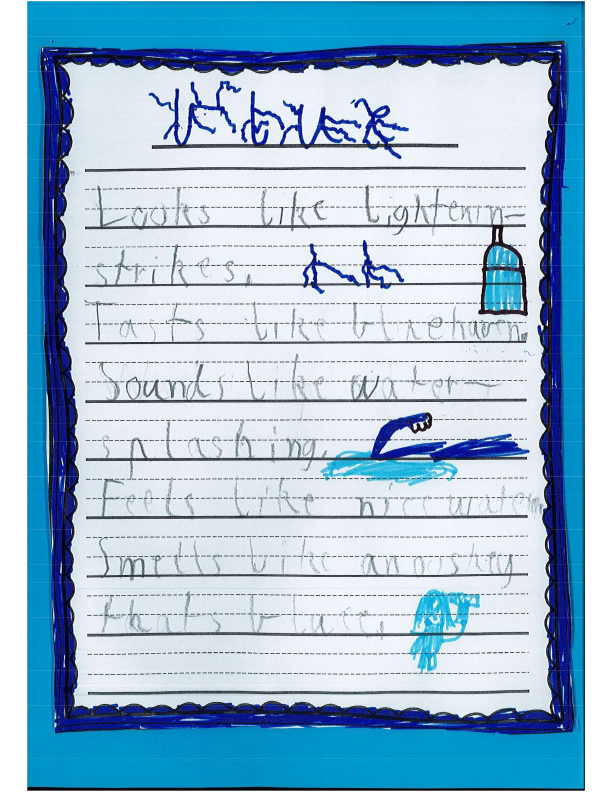 Blue
Looks like lightenin-
strikes.
Tasts like bluehaven.
Sounds like water-
splashing.
Feels like nice water
Smells like an ooshey
thats bluee.